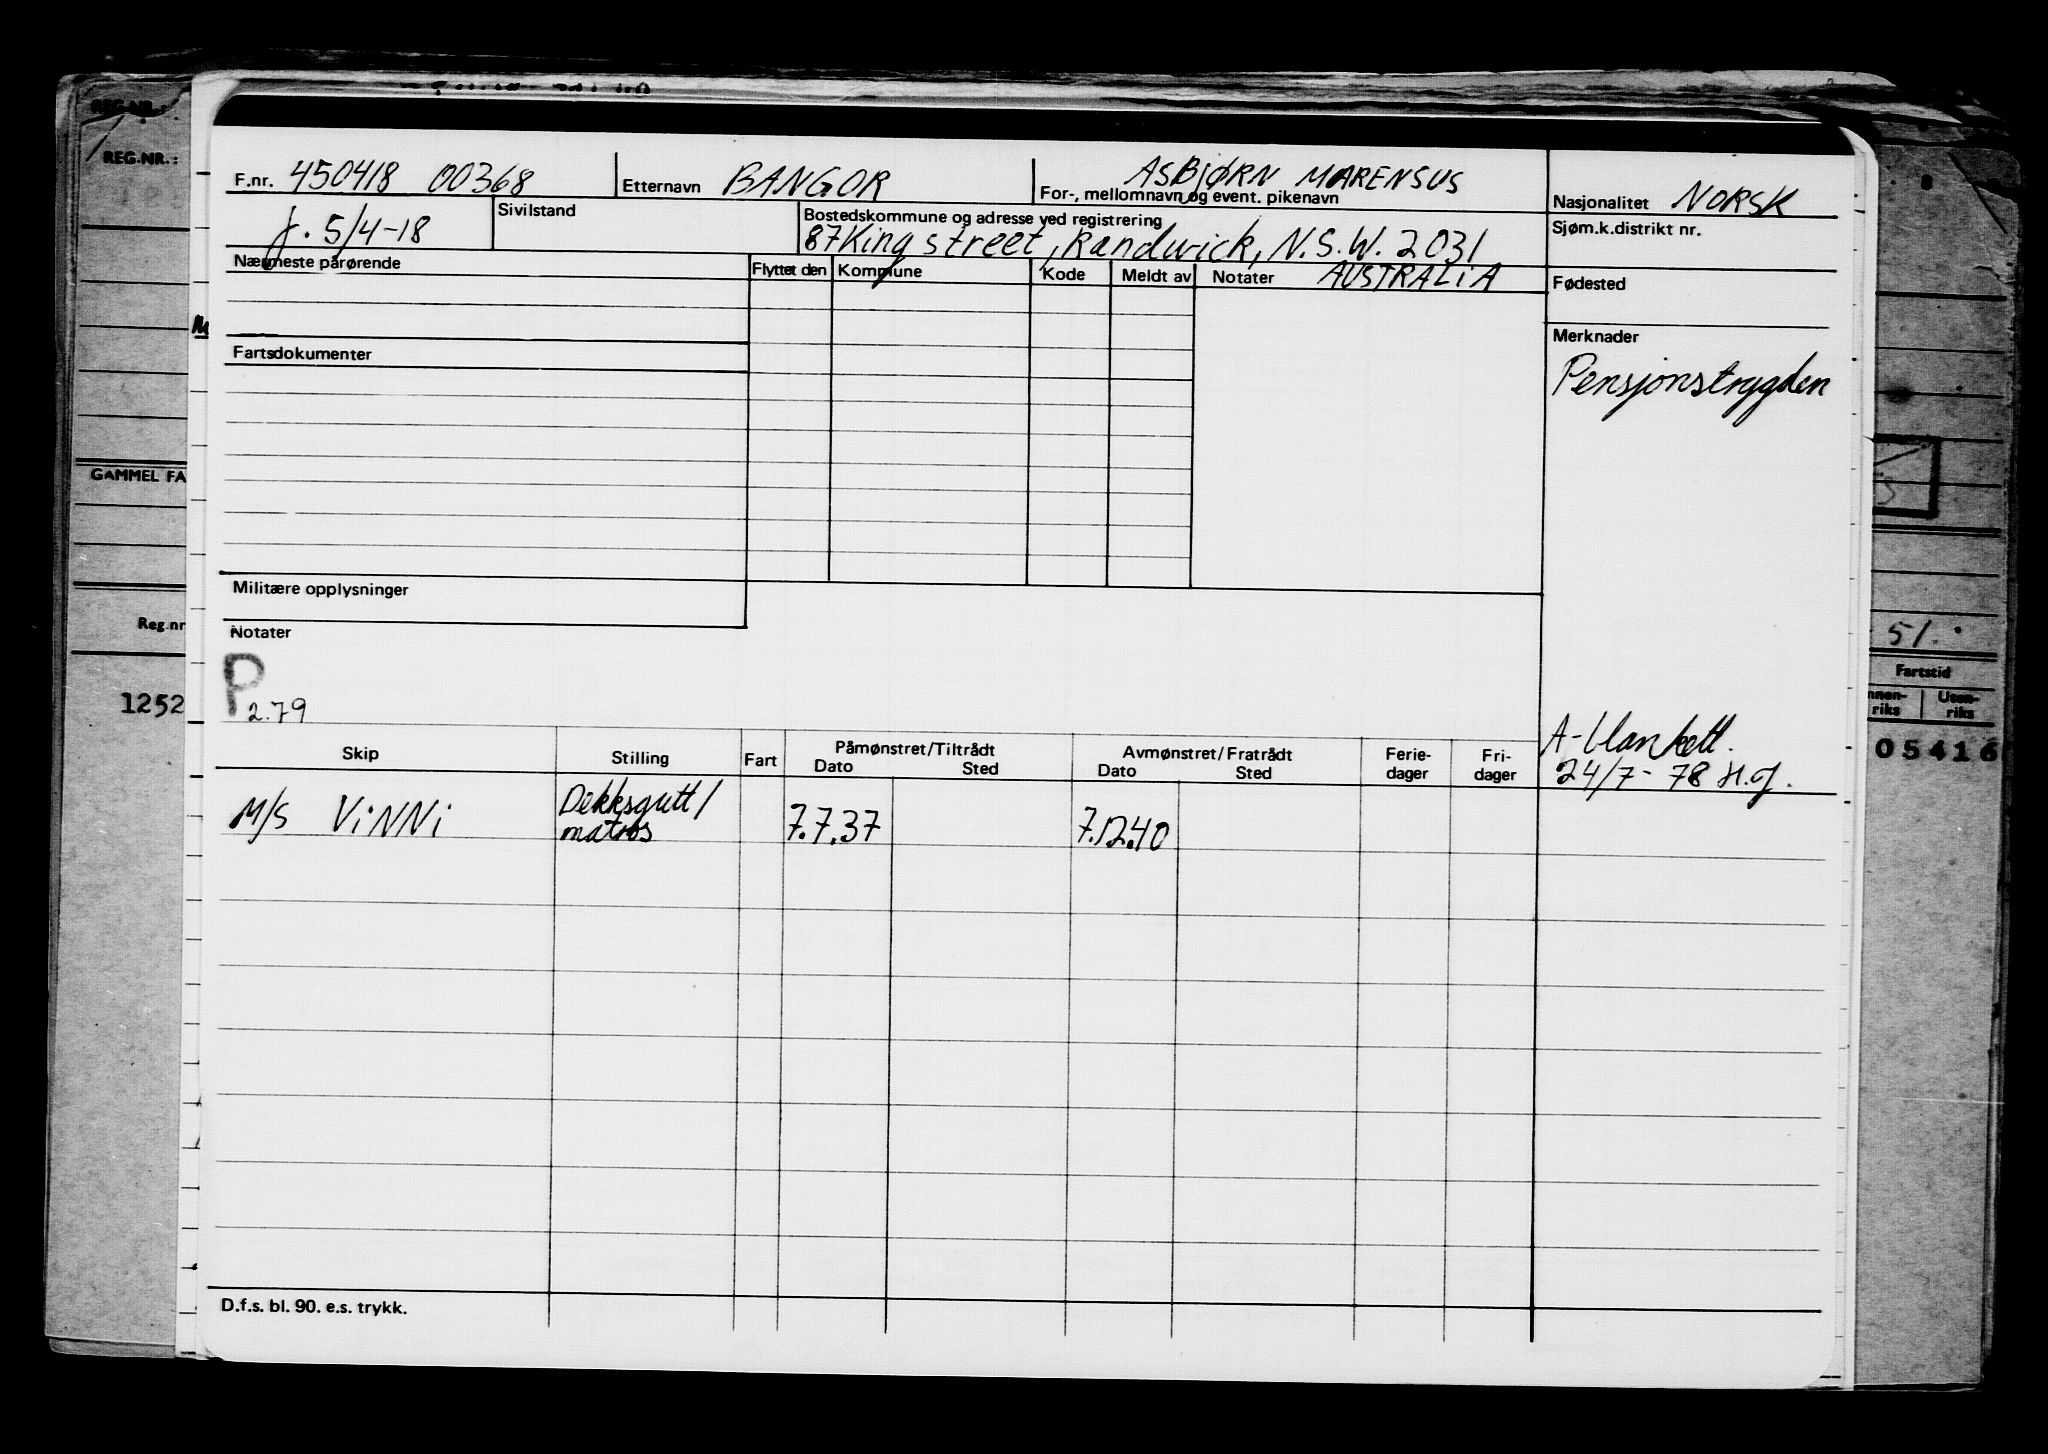 REG.NR.:
REG.NR.:
GAMMEL FA
Reg.nr
1252
F.nr. 450418 00368
Etternavn BANGOR
ASBJØRN MARENSUS
For-, mellomnavn og event. pikenavn
Nasjonalitet NORSK
f. 5/4-18
Sivilstand
Bostedskommune og adresse ved registrering
87 King street, Randwick, N.S.W. 2031
AUSTRALIA
Sjøm.k.distrikt nr.
Nærmeste pårørende
Flyttet den Kommune Kode Meldt av Notater
Fødested
Fartsdokumenter
Merknader
Pensjonstrygden
Militære opplysninger
Notater
P
2.79
A-blankett.
24/7-78 H.J.
Skip Stilling Fart Påmønstret/Tiltrådt Avmønstret/Fratrådt Ferie-dager Fri-dager
Dato Sted Dato Sted
M/S ViNNi Dekksgutt/
matros 7.7.37 7.12.40
D.f.s. bl. 90. e.s. trykk.
51.
Fartstid
nnen-riks Uten-riks
05416